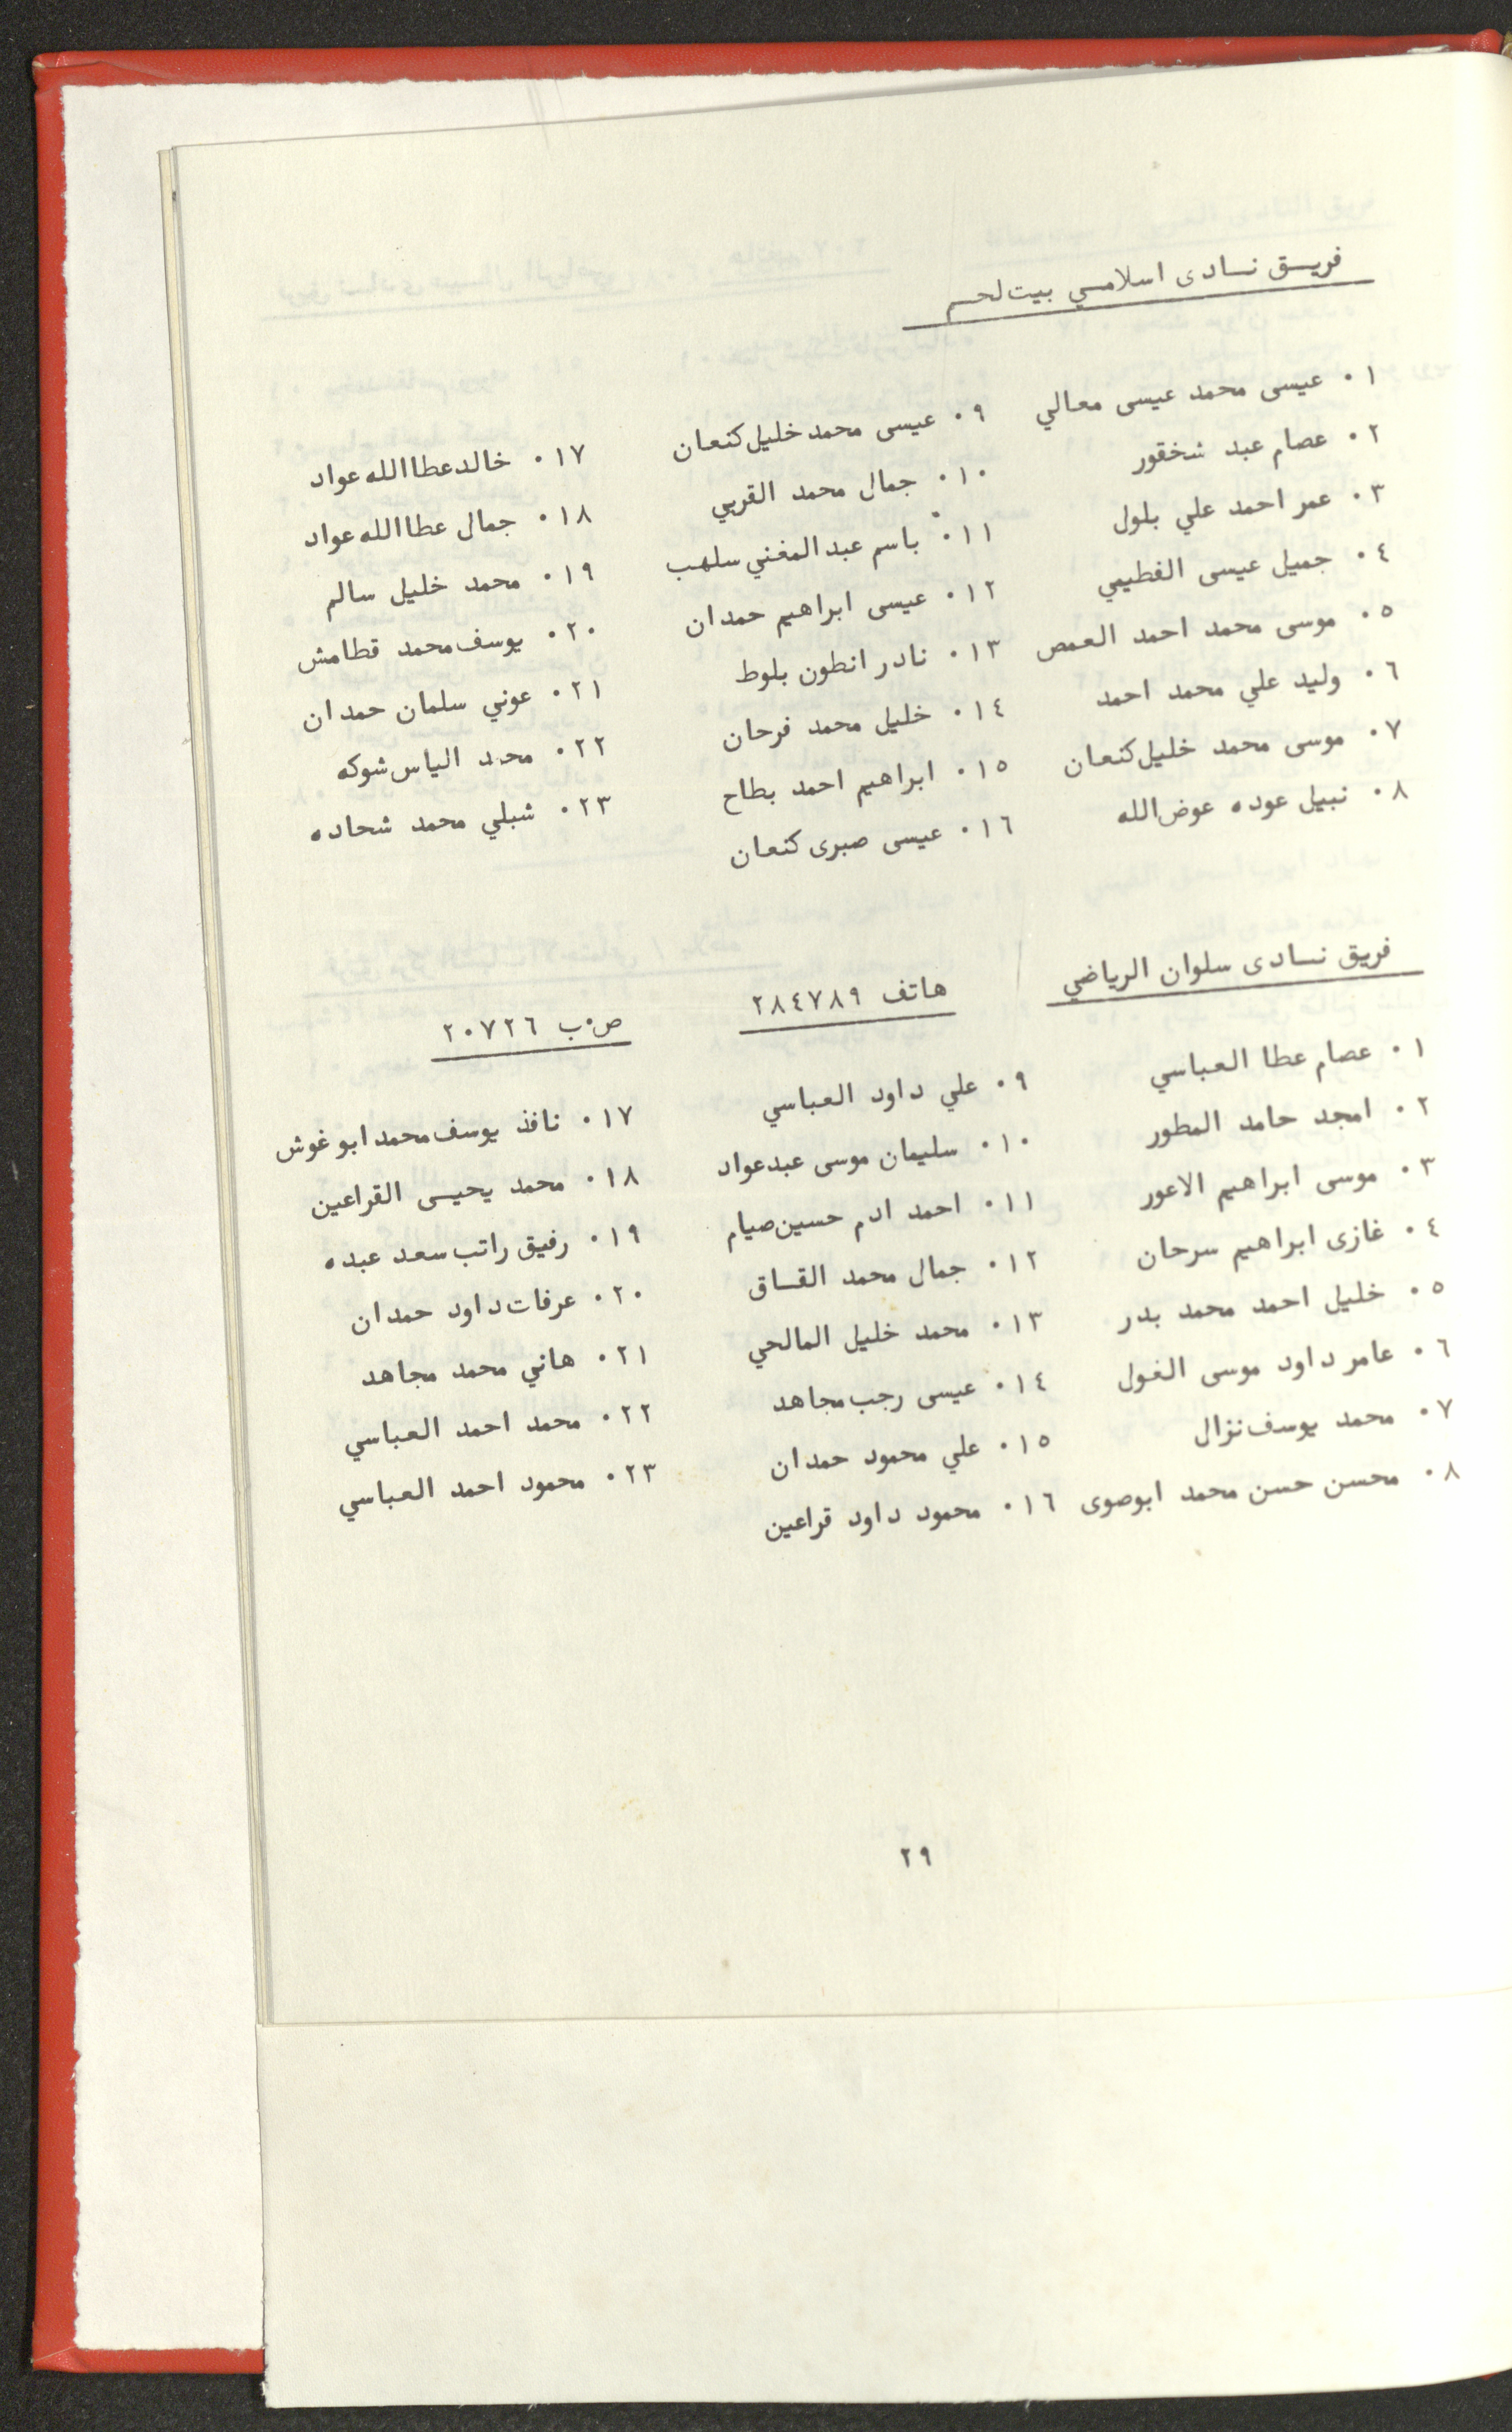 فريق نادى اسلامي بيت لحم
١٠ عيسى محمد عيسى معالي
٢٠ عصام عبد شخقور
٣٠ عمر احمد علي بلول
٤٠ جميل عيسى الفطيمي
٥٠ موسى محمد احمد العمص
٦٠ وليد علي محمد احمد
٧٠ موسى محمد خليل كنعان
٨٠ نبيل عوده عوض الله
٩٠ عيسى محمد خليل كنعان
١٠٠ جمال محمد القربي
١١٠ باسم عبد المغني سلهب
١٢٠ عيسى ابراهيم حمدان
١٣٠ نادر انطون بلوط
١٤٠ خليل محمد فرحان
١٥٠ ابراهيم احمد بطاح
١٦٠ عيسى صبرى كنعان
١٧٠ خالد عطا الله عواد
١٨٠ جمال عطا الله عواد
١٩٠ محمد خليل سالم
٢٠٠ يوسف محمد قطامش
٢١٠ عوني سلمان حمدان
٢٢٠ محمد الياس شوكه
٢٣٠ شبلي محمد شحاده
فريق نادى سلوان الرياضي
هاتف ٢٨٤٧٨٩
ص٠ب ٢٠٧٢٦
١٠ عصام عطا العباسي
٢٠ امجد حامد المطور
٣٠ موسى ابراهيم الاعور
٤٠ غازى ابراهيم سرحان
٥٠ خليل احمد محمد بدر
٦٠ عامر داود موسى الغول
٧٠ محمد يوسف نزال
٨٠ محسن حسن محمد ابوصوى
٩٠ علي داود العباسي
١٠٠ سليمان موسى عبد عواد
١١٠ احمد ادم حسين صيام
١٢٠ جمال محمد القاق
١٣٠ محمد خليل المالحي
١٤٠ عيسى رجب مجاهد
١٥٠ علي محمود حمدان
١٦٠ محمود داود قراعين
١٧٠ نافذ يوسف محمد ابو غوش
١٨٠ محمد يحيى القراعين
١٩٠ رفيق راتب سعد عبده
٢٠٠ عرفات داود حمدان
٢١٠ هاني محمد مجاهد
٢٢٠ محمد احمد العباسي
٢٣٠ محمود احمد العباسي
٢٩